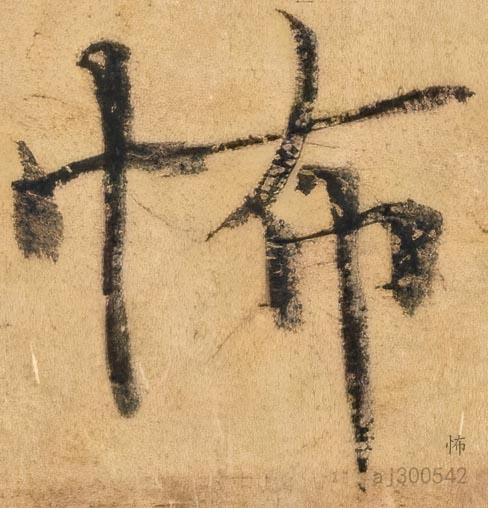 怖
怖
aj300542